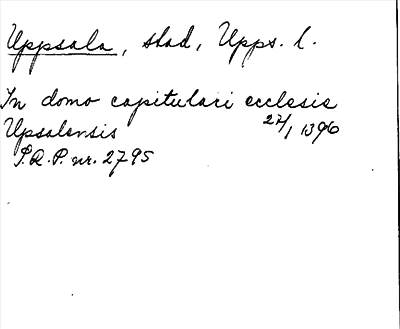 Uppsala, stad, Upps. l.
In domo capitulari ecclesie
Upsalensis 27/1 1396
S.R.P. nr. 2795